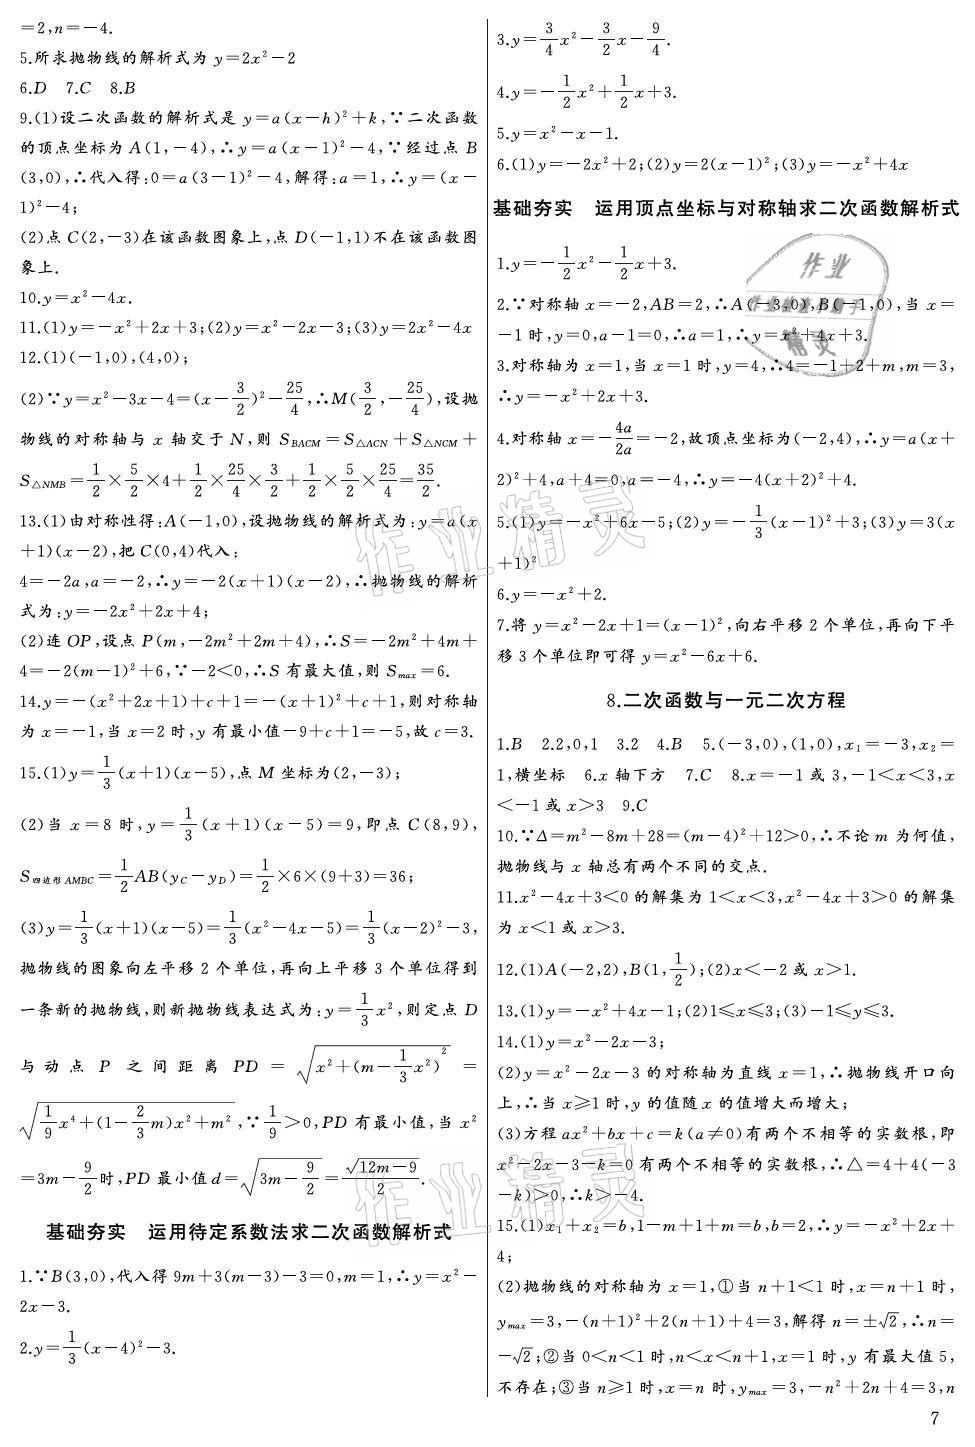 =2,n=-4.
5.所求抛物线的解析式为 y=2x²-2
6.D 7.C 8.B
9.(1)设二次函数的解析式是 y=a(x-h)²+k,∵二次函数
的顶点坐标为 A(1,-4),∴y=a(x-1)²-4,∵经过点 B
(3,0),∴代入得:0=a(3-1)²-4,解得:a=1,∴y=(x-
1)²-4;
(2)点 C(2,-3)在该函数图象上,点 D(-1,1)不在该函数图
象上.
10.y=x²-4x.
11.(1)y=-x²+2x+3;(2)y=x²-2x-3;(3)y=2x²-4x
12.(1)(-1,0),(4,0);
(2)∵y=x²-3x-4=(x-3/2)²-25/4,∴M(3/2,-25/4),设抛
物线的对称轴与 x 轴交于 N,则 S_BACM=S△ACN+S△NCM+
S△NMB=1/2×5/2×4+1/2×25/4×3/2+1/2×5/2×25/4=35/2.
13.(1)由对称性得:A(-1,0),设抛物线的解析式为:y=a(x
+1)(x-2),把 C(0,4)代入:
4=-2a,a=-2,∴y=-2(x+1)(x-2),∴抛物线的解析
式为:y=-2x²+2x+4;
(2)连 OP,设点 P(m,-2m²+2m+4),∴S=-2m²+4m+
4=-2(m-1)²+6,∵-2<0,∴S 有最大值,则 Smax=6.
14.y=-(x²+2x+1)+c+1=-(x+1)²+c+1,则对称轴
为 x=-1,当 x=2 时,y 有最小值-9+c+1=-5,故 c=3.
15.(1)y=1/3(x+1)(x-5),点 M 坐标为(2,-3);
(2)当 x=8 时,y=1/3(x+1)(x-5)=9,即点 C(8,9),
S四边形AMBC=1/2AB(yC-yD)=1/2×6×(9+3)=36;
(3)y=1/3(x+1)(x-5)=1/3(x²-4x-5)=1/3(x-2)²-3,
抛物线的图象向左平移 2 个单位,再向上平移 3 个单位得到
一条新的抛物线,则新抛物线表达式为:y=1/3x²,则定点 D
与动点 P 之间距离 PD=√(x²+(m-1/3x²)²)=
√(1/9x⁴+(1-2/3m)x²+m²),∵1/9>0,PD 有最小值,当 x²
=3m-9/2时,PD 最小值 d=√(3m-9/2)=√(12m-9)/2.
基础夯实 运用待定系数法求二次函数解析式
1.∵B(3,0),代入得 9m+3(m-3)-3=0,m=1,∴y=x²-
2x-3.
2.y=1/3(x-4)²-3.
3.y=3/4x²-3/2x-9/4.
4.y=-1/2x²+1/2x+3.
5.y=x²-x-1.
6.(1)y=-2x²+2;(2)y=2(x-1)²;(3)y=-x²+4x
基础夯实 运用顶点坐标与对称轴求二次函数解析式
1.y=-1/2x²-1/2x+3.
2.∵对称轴 x=-2,AB=2,∴A(-3,0),B(-1,0),当 x=
-1时,y=0,a-1=0,∴a=1,∴y=x²+4x+3.
3.对称轴为 x=1,当 x=1 时,y=4,∴4=-1+2+m,m=3,
∴y=-x²+2x+3.
4.对称轴 x=-4a/2a=-2,故顶点坐标为(-2,4),∴y=a(x+
2)²+4,a+4=0,a=-4,∴y=-4(x+2)²+4.
5.(1)y=-x²+6x-5;(2)y=-1/3(x-1)²+3;(3)y=3(x
+1)²
6.y=-x²+2.
7.将 y=x²-2x+1=(x-1)²,向右平移 2 个单位,再向下平
移 3 个单位即可得 y=x²-6x+6.
8.二次函数与一元二次方程
1.B 2.2,0,1 3.2 4.B 5.(-3,0),(1,0),x₁=-3,x₂=
1,横坐标 6.x 轴下方 7.C 8.x=-1 或 3,-1<x<3,x
<-1 或 x>3 9.C
10.∵Δ=m²-8m+28=(m-4)²+12>0,∴不论 m 为何值,
抛物线与 x 轴总有两个不同的交点.
11.x²-4x+3<0 的解集为 1<x<3,x²-4x+3>0 的解集
为 x<1 或 x>3.
12.(1)A(-2,2),B(1,1/2);(2)x<-2 或 x>1.
13.(1)y=-x²+4x-1;(2)1⩽x⩽3;(3)-1⩽y⩽3.
14.(1)y=x²-2x-3;
(2)y=x²-2x-3 的对称轴为直线 x=1,∴抛物线开口向
上,∴当 x⩾1 时,y 的值随 x 的值增大而增大;
(3)方程 ax²+bx+c=k(a≠0)有两个不相等的实数根,即
x²-2x-3-k=0 有两个不相等的实数根,∴△=4+4(-3
-k)>0,∴k>-4.
15.(1)x₁+x₂=b,1-m+1+m=b,b=2,∴y=-x²+2x+
4;
(2)抛物线的对称轴为 x=1,①当 n+1<1 时,x=n+1 时,
ymax=3,-(n+1)²+2(n+1)+4=3,解得 n=±√2,∴n=
-√2;②当 0<n<1 时,n<x<n+1,x=1 时,y 有最大值 5,
不存在;③当 n⩾1 时,x=n 时,ymax=3,-n²+2n+4=3,n
7
作业
精灵
作业精灵
作业精灵